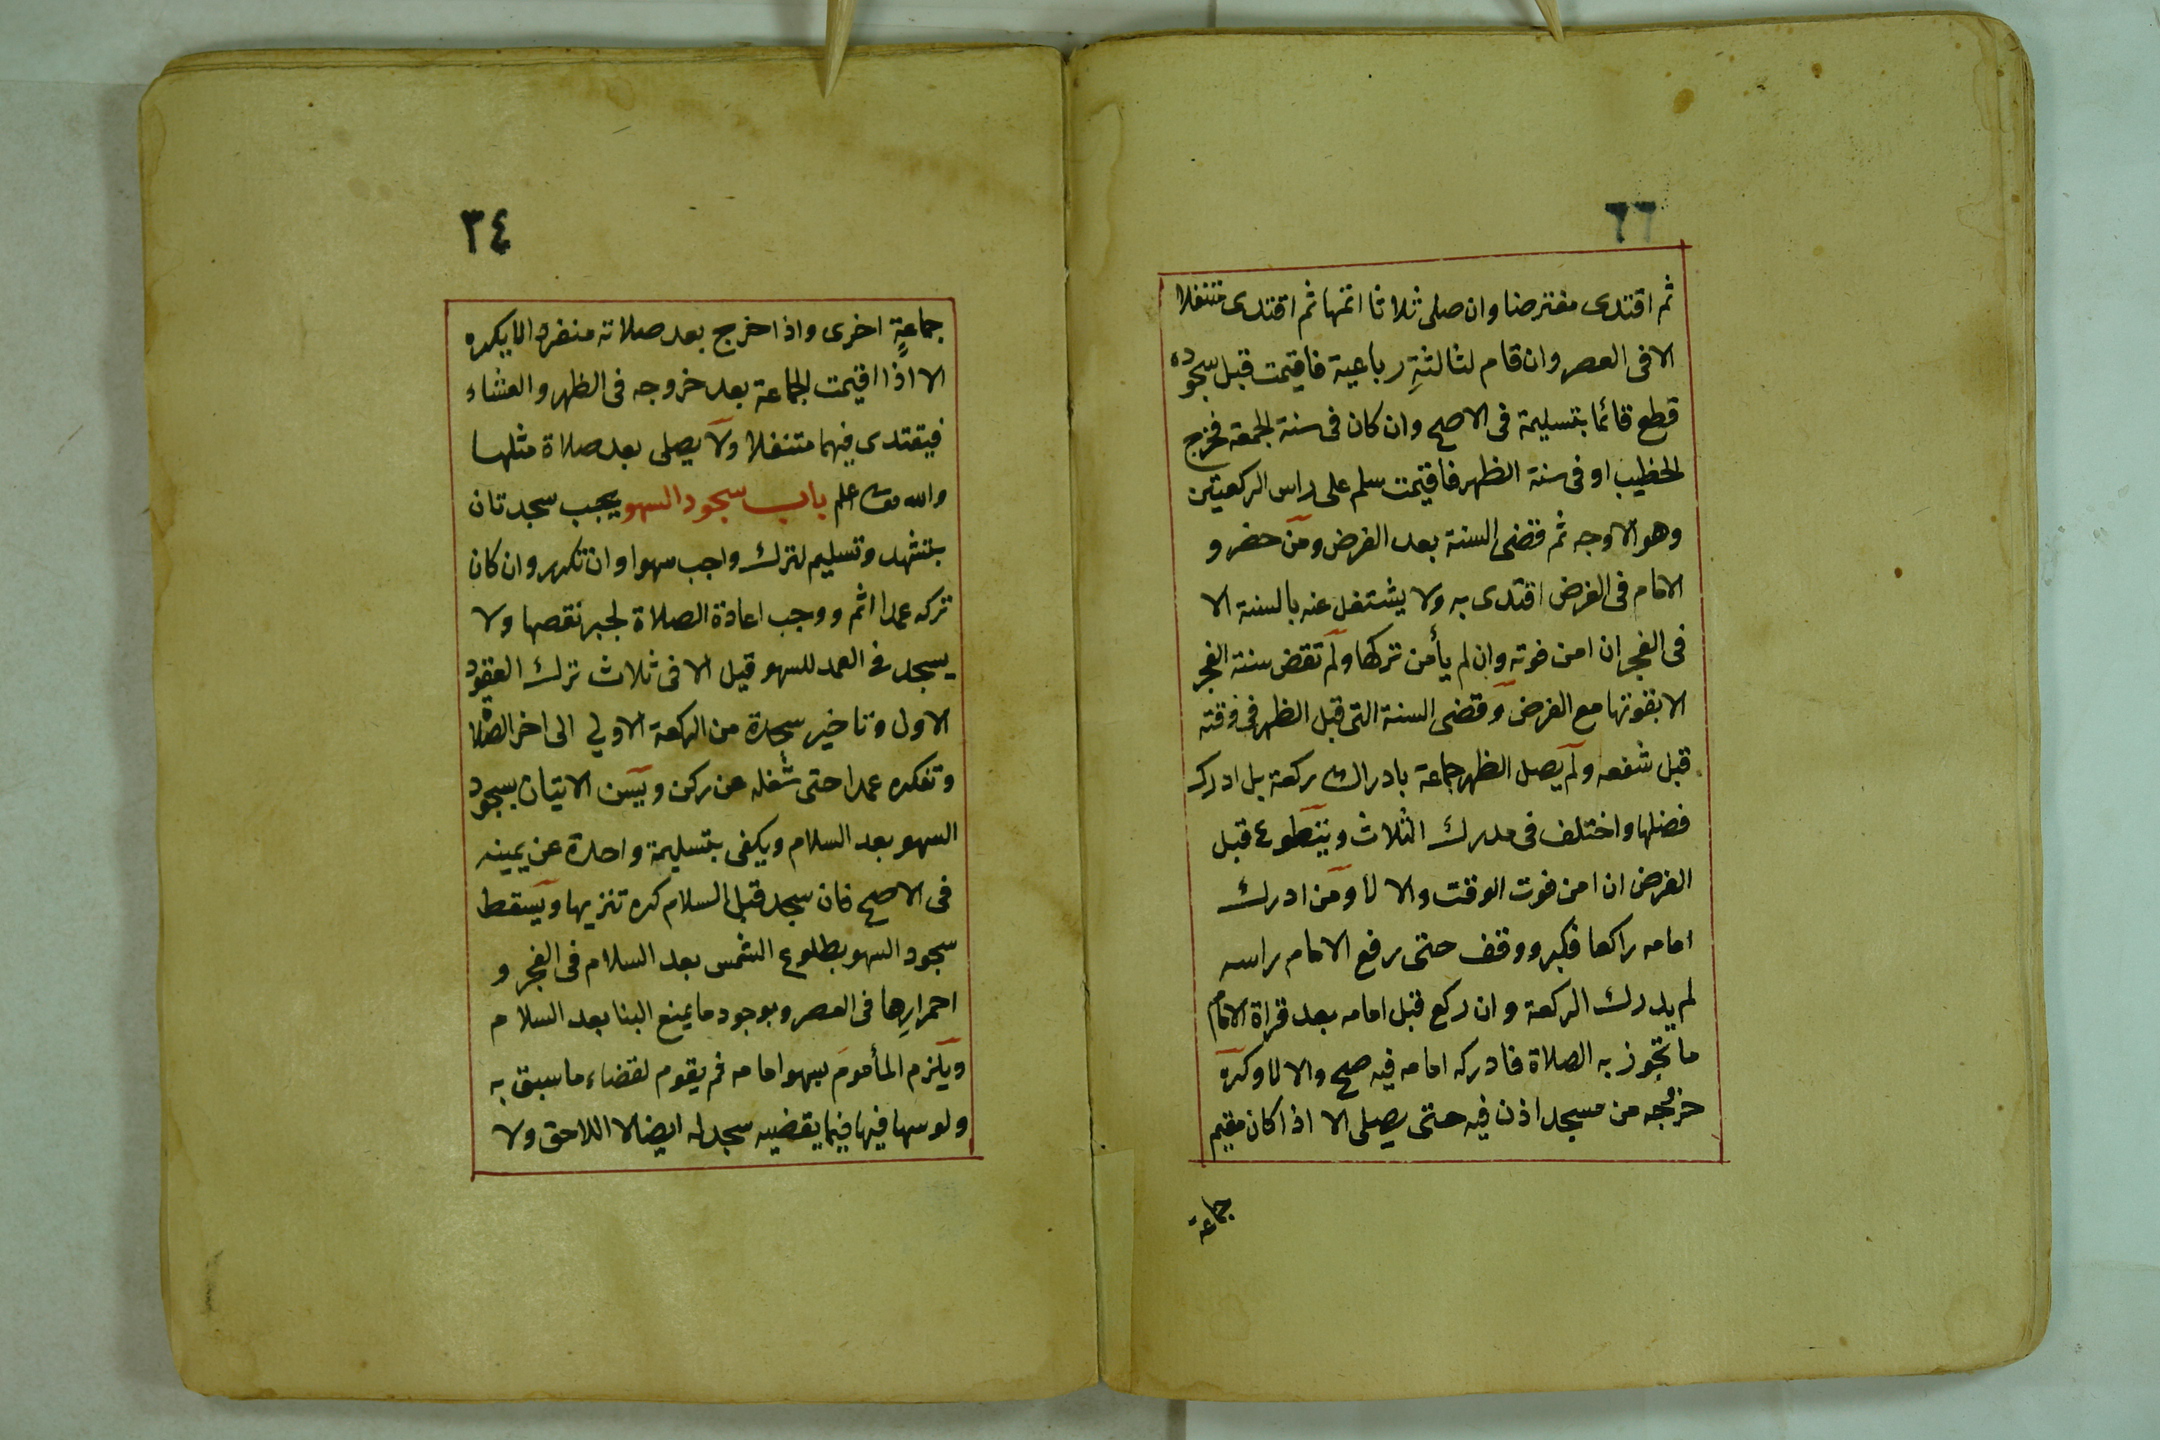 ٦٦
ثم اقتدى مفترضا وان صلى ثلاثا اتمها ثم اقتدى متنفلا
الا فى العصر وان قام لثالثةِ رباعية فاقيمت قبل سجوده
قطع قائما بتسليمة فى الاصح وان كان فى سنة الجمعة فخرج
الخطيب او فى سنة الظهر فاقيمت سلم على راس الركعتين
وهو الاوجه ثم قضى السنة بعد الفرض ومن حضر و
الامام فى الفرض اقتدى به ولا يشتغل عنه بالسنة الا
فى الفجر ان امن فوته وان لم يأمن تركها ولم تقض سنة الفجر
الا بفوتها مع الفرض وقضى السنة التى قبل الظهر فى وقته
قبل شفعه ولم يصل الظهر جماعة بادراك ركعة بل ادرك
فضلها واختلف فى مدرك الثلاث ويتطوع قبل
الفرض ان امن فوت الوقت والا لا ومن ادرك
امامه راكعا فكبر ووقف حتى رفع الامام راسه
لم يدرك الركعة وان ركع قبل امامه بعد قراة الامام
ما تجوز به الصلاة فادركه امامه فيه صح والا لا وكره
خروجه من مسجد اذن فيه حتى يصلى الا اذا كان مقيم
جماعة
٣٤
جماعةٍ اخرى واذا خرج بعد صلاته منفردا لا يكره
الا اذا اقيمت الجماعة بعد خروجه فى الظهر والعشاء
فيقتدى فيهما متنفلا ولا يصلى بعد صلاة مثلها
والله اعلم باب سجود السهو يجب سجدتان
بتشهد وتسليم لترك واجب سهوا وان تكرر وان كان
تركه عمدا اثم ووجب اعادة الصلاة لجبر نقصها ولا
يسجد فى العمد للسهو قيل الا فى ثلاث ترك القعود
الاول وتاخير سجدة من الركعة الاولي الى اخر الصلاة
وتفكره عمدا حتى شغله عن ركن ويسن الاتيان بسجود
السهو بعد السلام ويكفى بتسليمة واحدة عن يمينه
فى الاصح فان سجد قبل السلام كره تنزيها ويسقط
سجود السهو بطلوع الشمس بعد السلام فى الفجر و
احمرارِها فى العصر وبوجود ما يمنع البنا بعد السلام
ويلزم المأمومَ بسهو امامه ثم يقوم لقضاء ما سبق به
ولو سها فيها فيما يقضيه سجد له ايضا لا اللاحق ولا